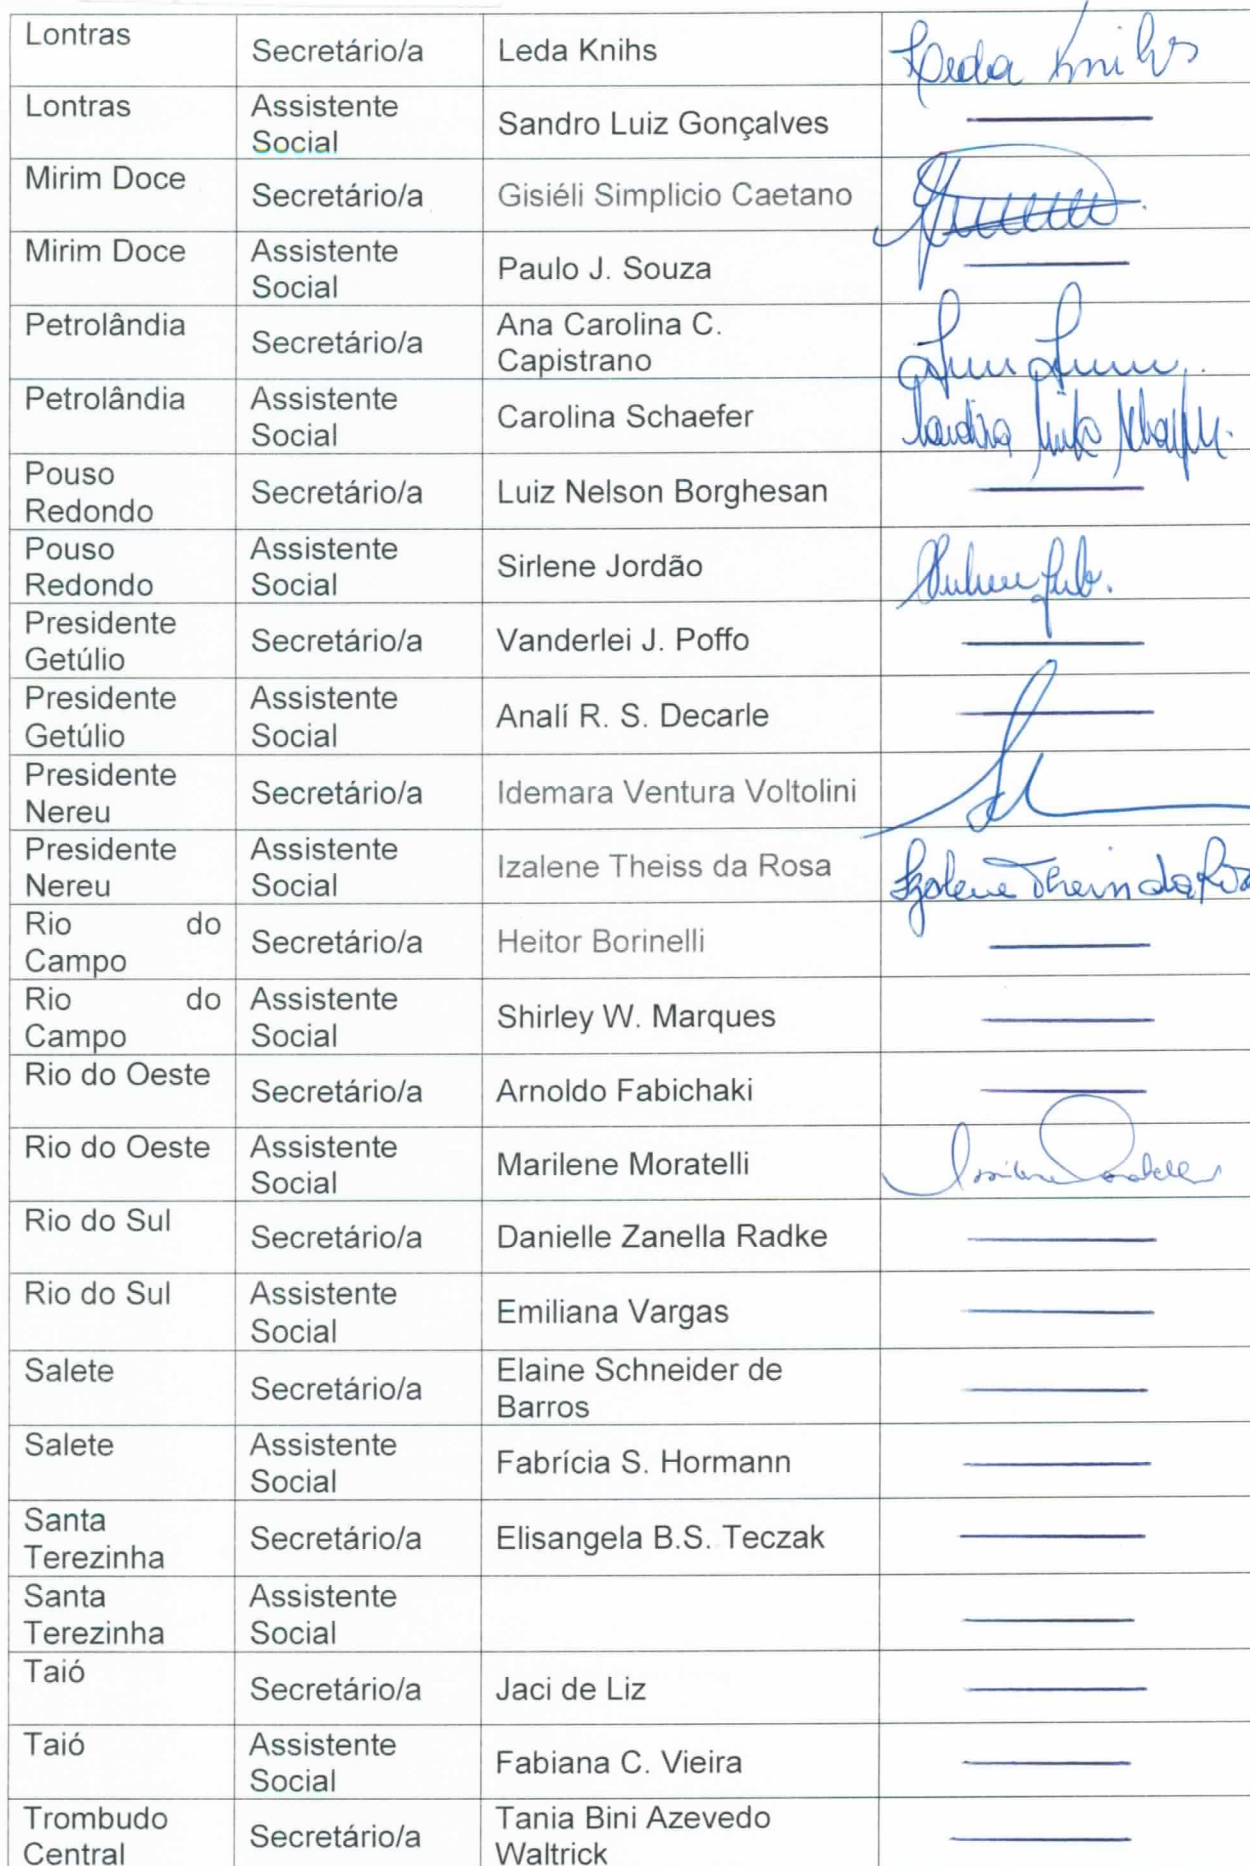 Lontras Secretário/a Leda Knihs Leda Knihs
Lontras Assistente Social Sandro Luiz Gonçalves
Mirim Doce Secretário/a Gisiéli Simplicio Caetano
Mirim Doce Assistente Social Paulo J. Souza
Petrolândia Secretário/a Ana Carolina C. Capistrano
Petrolândia Assistente Social Carolina Schaefer
Pouso Redondo Secretário/a Luiz Nelson Borghesan
Pouso Redondo Assistente Social Sirlene Jordão
Presidente Getúlio Secretário/a Vanderlei J. Poffo
Presidente Getúlio Assistente Social Analí R. S. Decarle
Presidente Nereu Secretário/a Idemara Ventura Voltolini
Presidente Nereu Assistente Social Izalene Theiss da Rosa Izalene Theiss da Rosa
Rio do Campo Secretário/a Heitor Borinelli
Rio do Campo Assistente Social Shirley W. Marques
Rio do Oeste Secretário/a Arnoldo Fabichaki
Rio do Oeste Assistente Social Marilene Moratelli
Rio do Sul Secretário/a Danielle Zanella Radke
Rio do Sul Assistente Social Emiliana Vargas
Salete Secretário/a Elaine Schneider de Barros
Salete Assistente Social Fabrícia S. Hormann
Santa Terezinha Secretário/a Elisangela B.S. Teczak
Santa Terezinha Assistente Social
Taió Secretário/a Jaci de Liz
Taió Assistente Social Fabiana C. Vieira
Trombudo Central Secretário/a Tania Bini Azevedo Waltrick